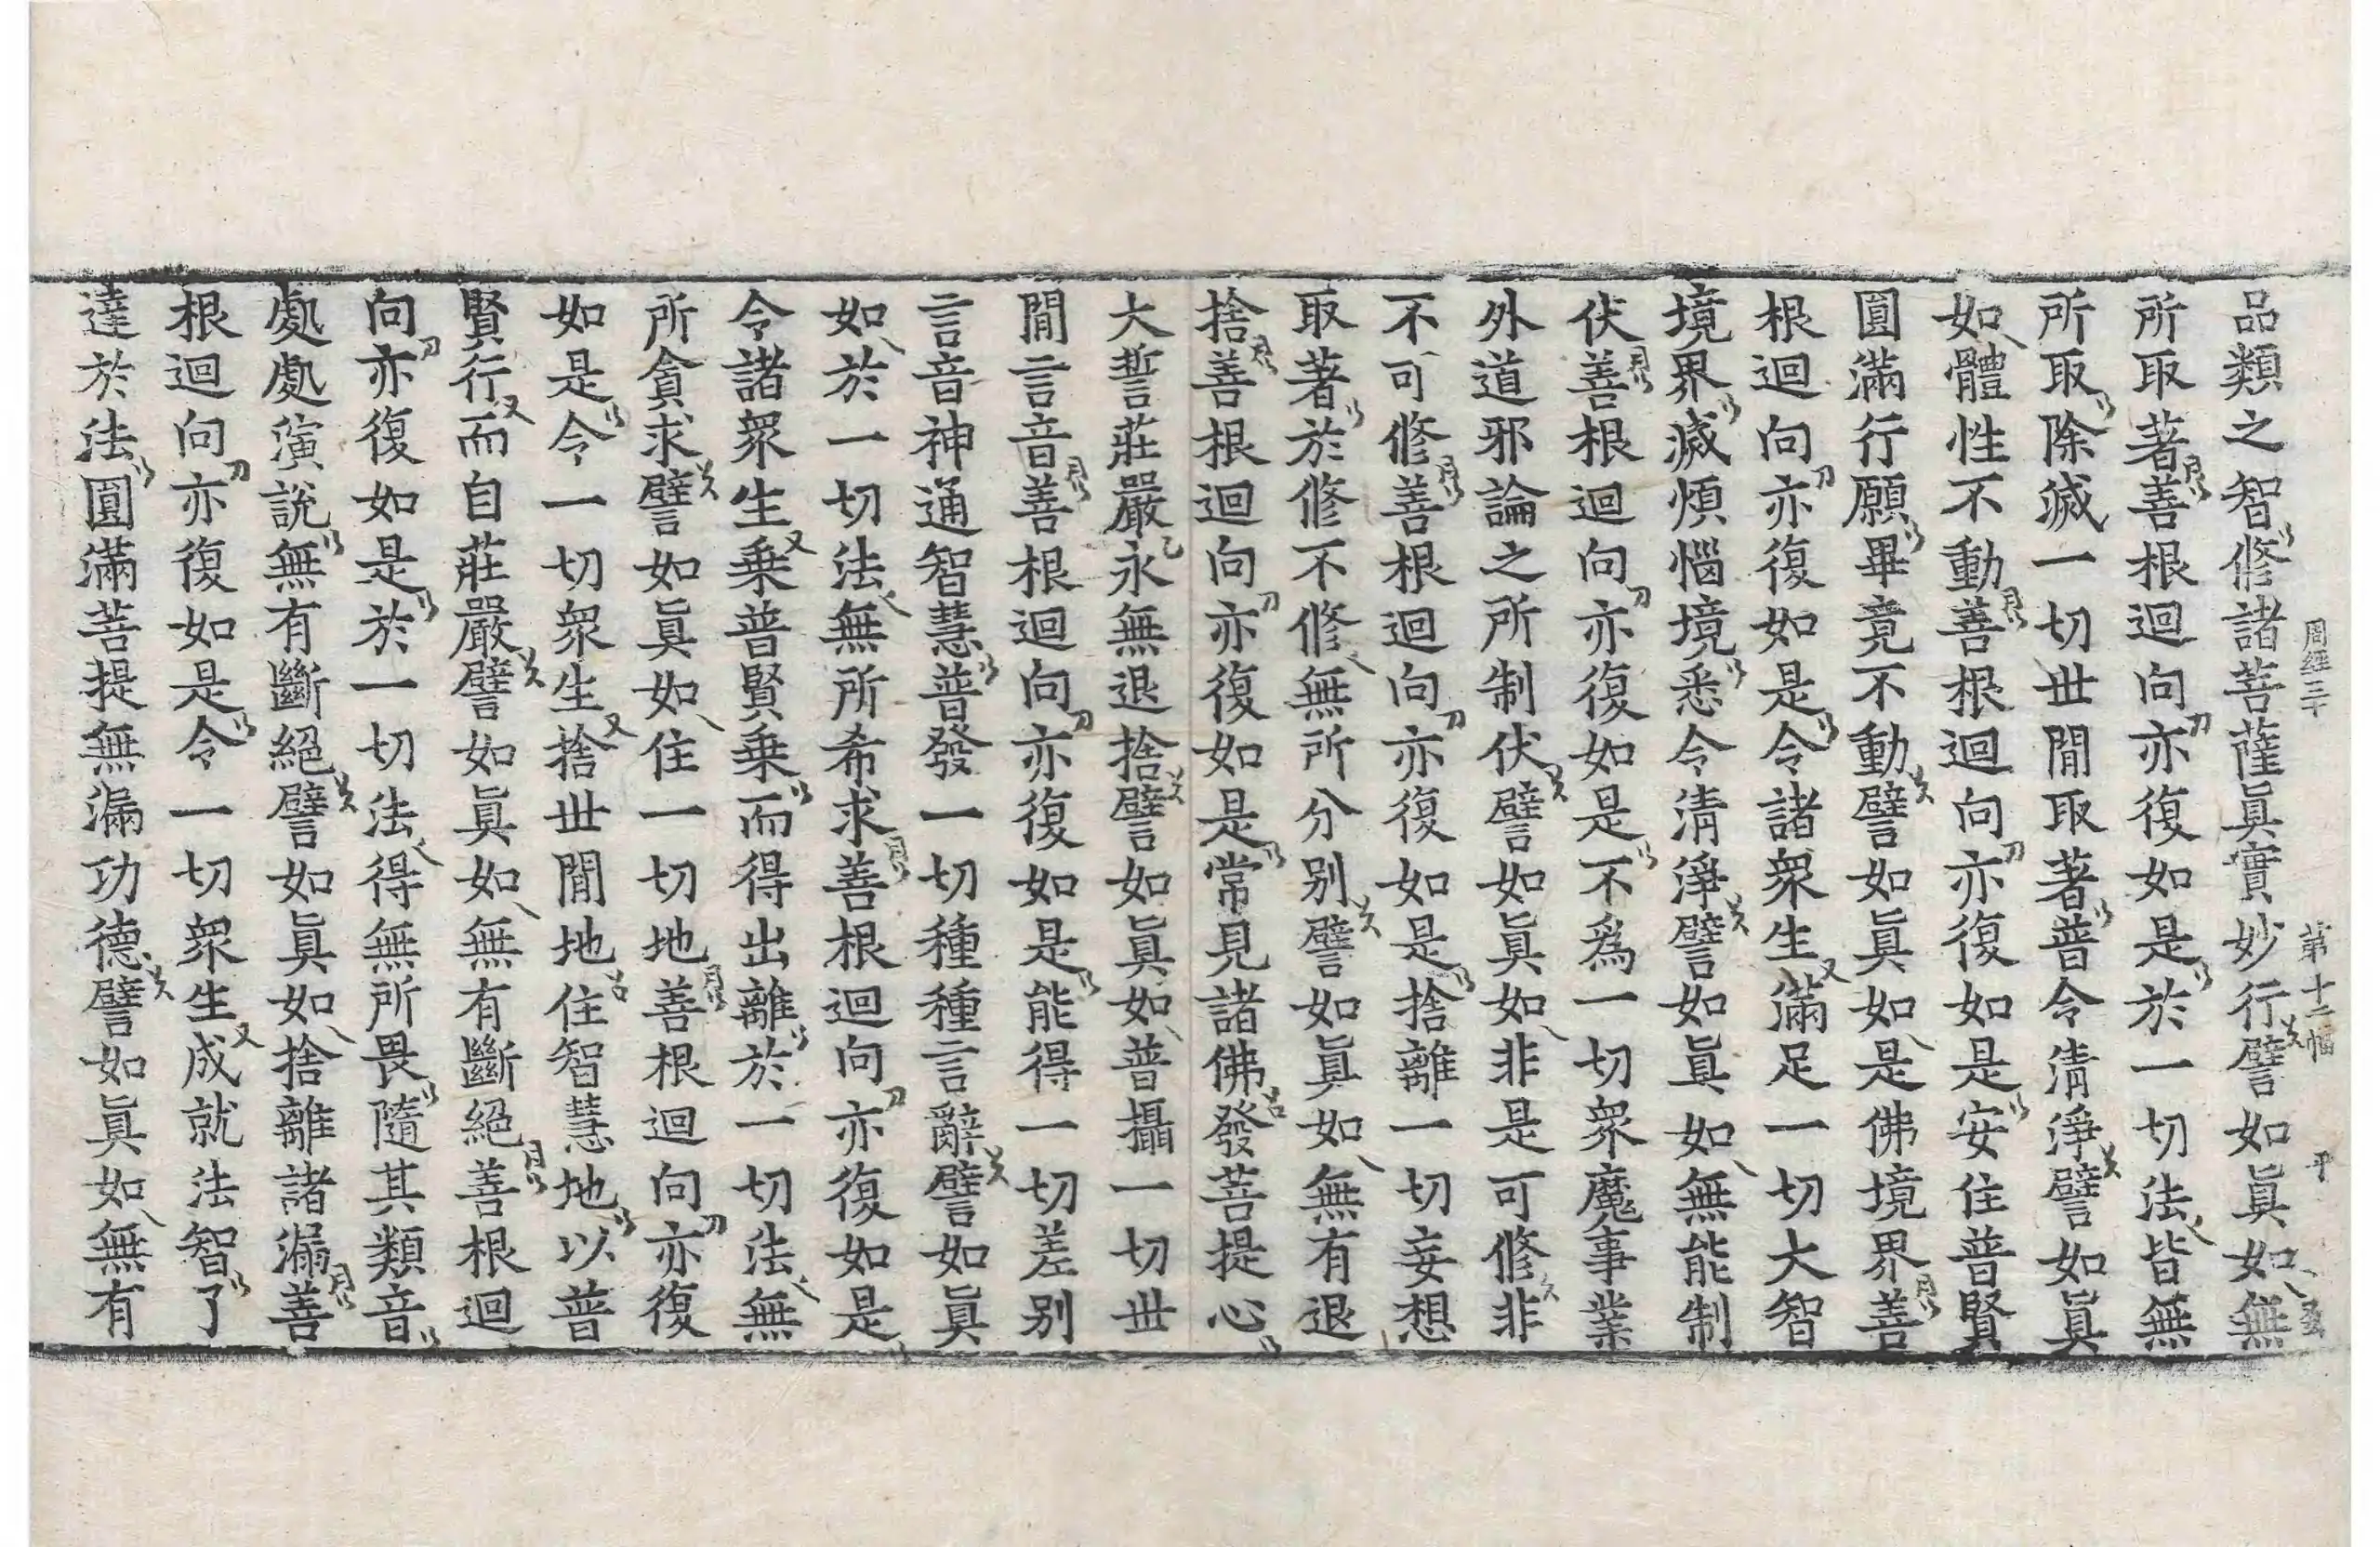 周經三十 第十二幅 平
品類之智修諸菩薩眞實妙行譬如眞如無
所取著善根迴向亦復如是於一切法皆無
所取除滅一切世閒取著普令淸淨譬如眞
如體性不動善根迴向亦復如是安住普賢
圓滿行願畢竟不動譬如眞如是佛境界善
根迴向亦復如是令諸衆生滿足一切大智
境界滅煩惱境悉令淸淨譬如眞如無能制
伏善根迴向亦復如是不爲一切衆魔事業
外道邪論之所制伏譬如眞如非是可修非
不可修善根迴向亦復如是捨離一切妄想
取著於修不修無所分别譬如眞如無有退
捨善根迴向亦復如是常見諸佛發菩提心
大誓莊嚴永無退捨譬如眞如普攝一切世
閒言音善根迴向亦復如是能得一切差别
言音神通智慧普發一切種種言辭譬如眞
如於一切法無所希求善根迴向亦復如是
令諸衆生乗普賢乗而得出離於一切法無
所貪求譬如眞如住一切地善根迴向亦復
如是令一切衆生捨世閒地住智慧地以普
賢行而自莊嚴譬如眞如無有斷絕善根迴
向亦復如是於一切法得無所畏隨其類音
處處演說無有斷絕譬如眞如捨離諸漏善
根迴向亦復如是令一切衆生成就法智了
達於法圓滿菩提無漏功德譬如眞如無有